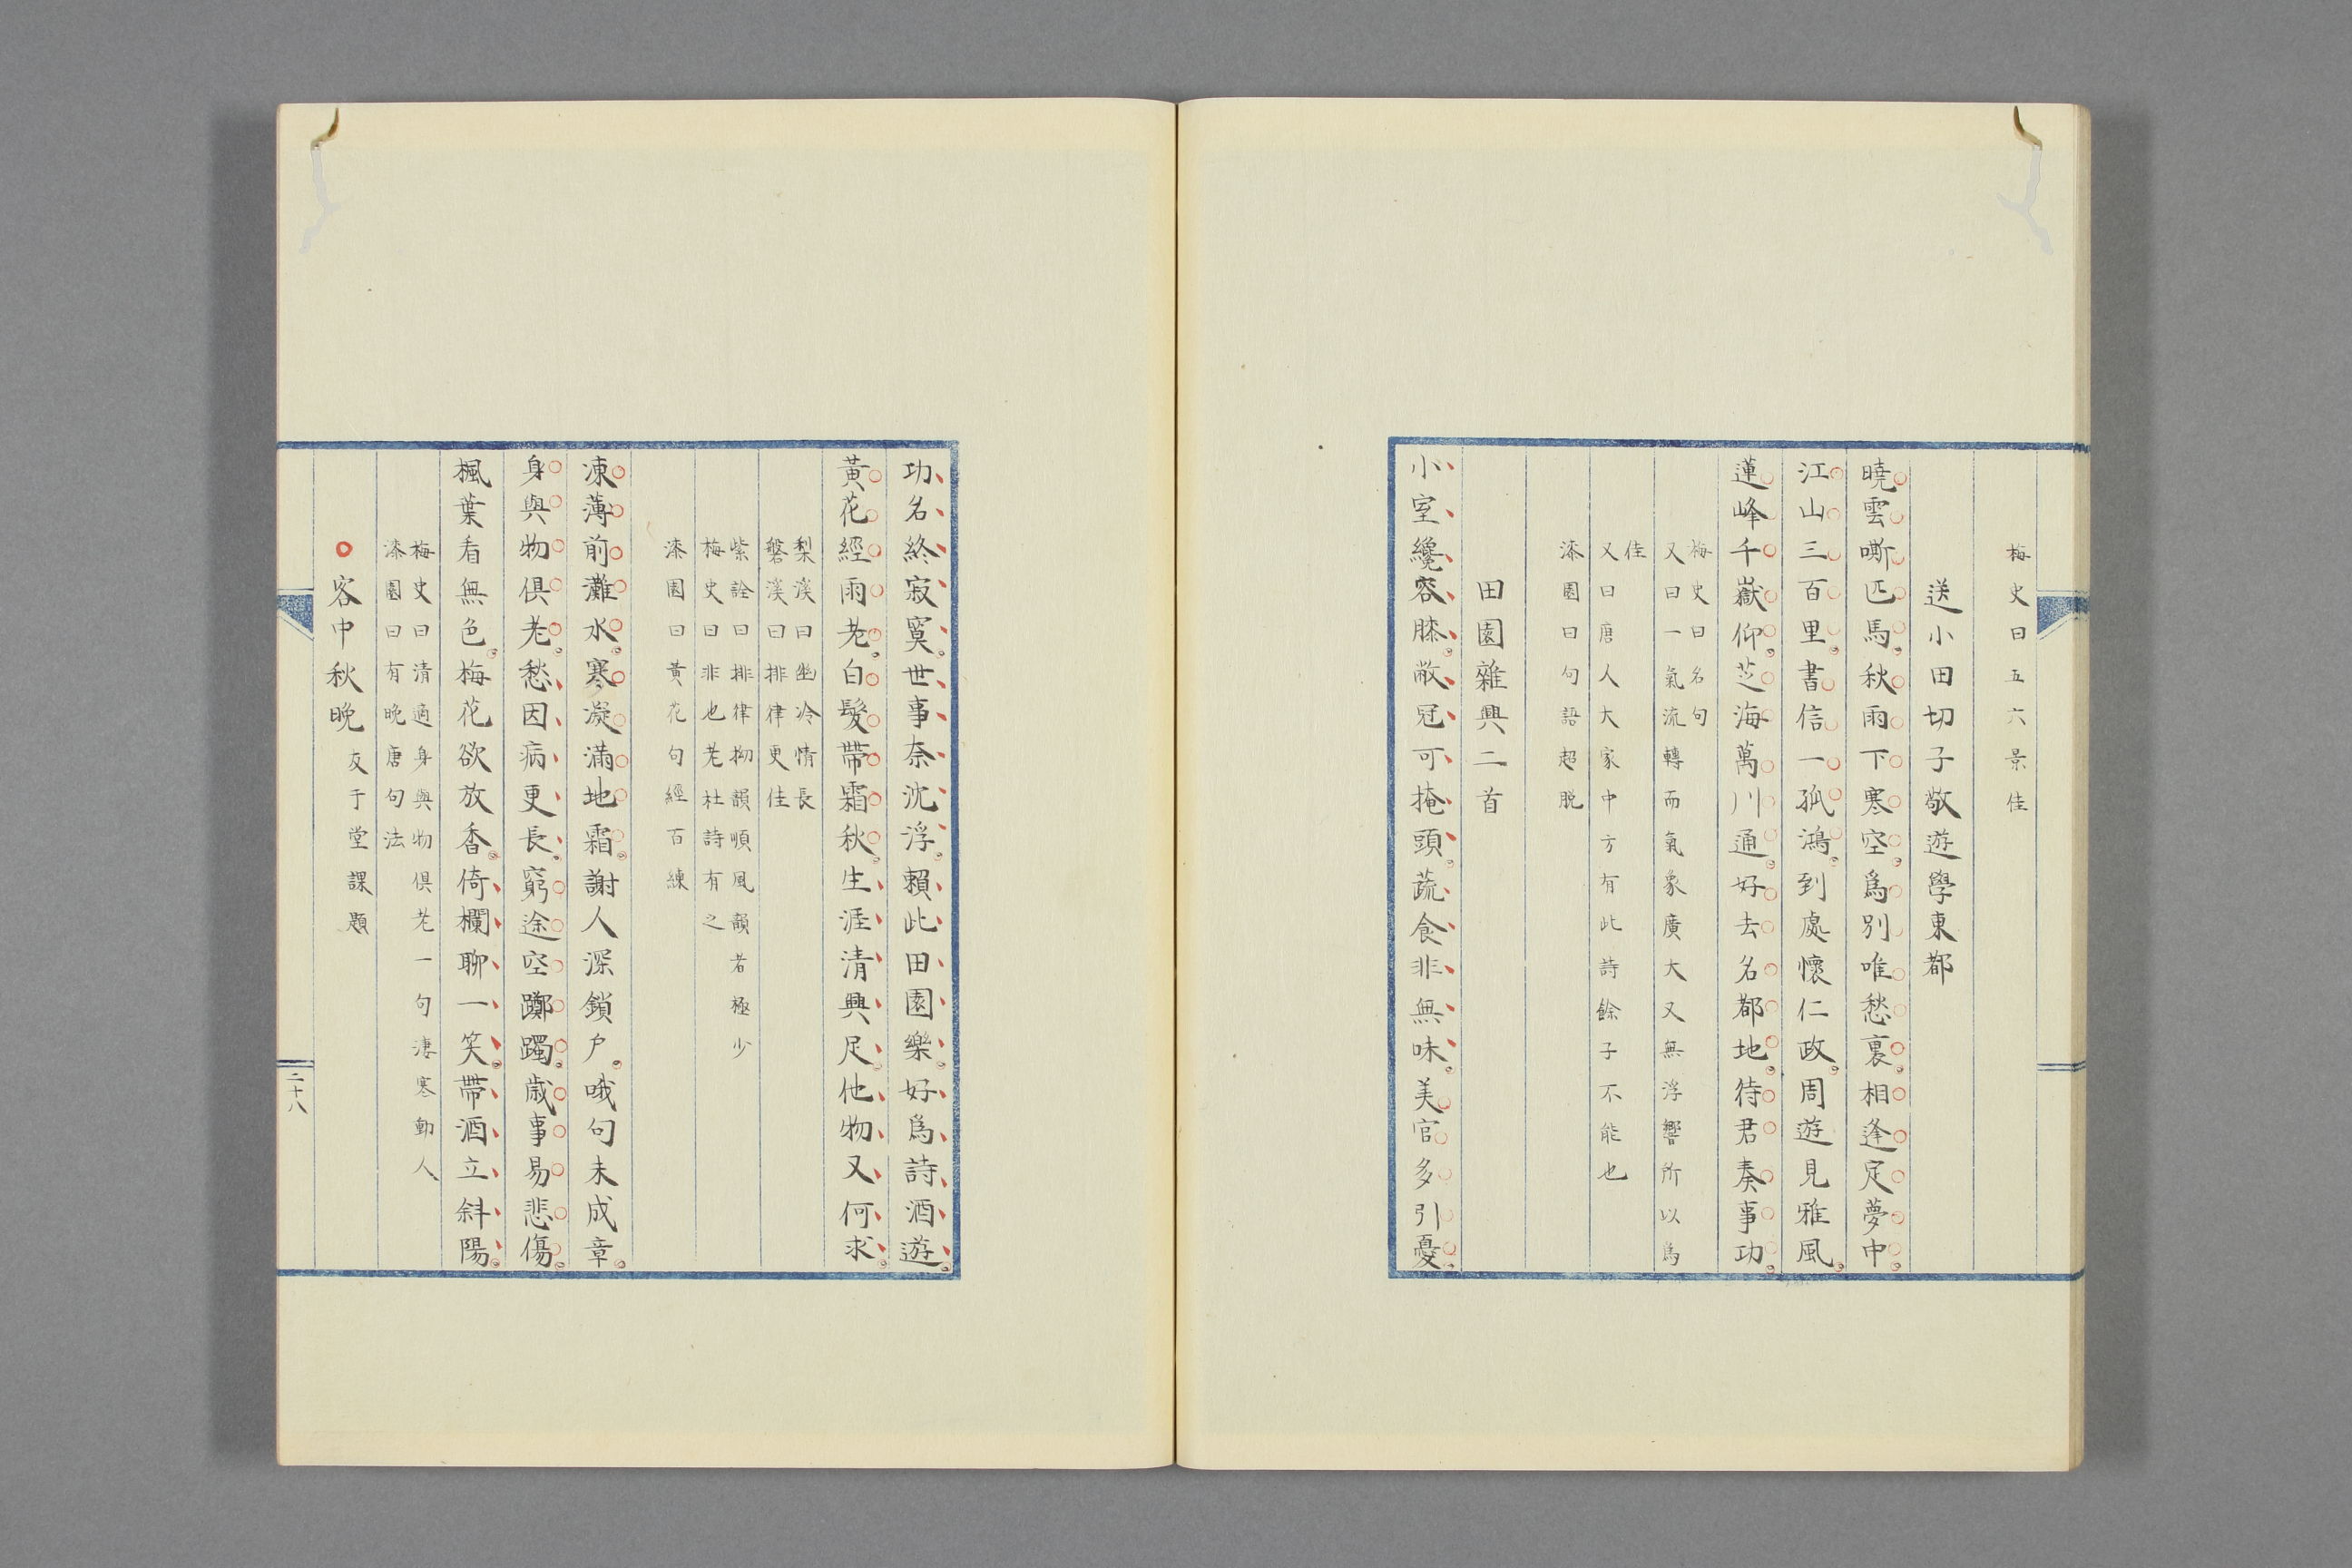 梅史曰五六景佳
送小田切子敬遊學東都
曉雲嘶匹馬秋雨下寒空爲別唯愁裏相逢定夢中
江山三百里書信一孤鴻到處懷仁政周遊見雅風
蓮峰千嶽仰芝海萬川通好去名都地待君奏事功
梅史曰名句
又曰一氣流轉而氣象廣大又無浮響所以爲
佳
又曰唐人大家中方有此詩餘子不能也
漆園曰句語超脫
田園雜興二首
小室纔容膝敝冠可掩頭蔬食非無味美官多引憂
功名終寂寞世事奈沈浮賴此田園樂好爲詩酒遊
黃花經雨老白髮帶霜秋生涯清興足他物又何求
梨溪曰幽冷情長
磐溪曰排律更佳
紫詮曰排律拗韻順風韻者極少
梅史曰非也老杜詩有之
漆園曰黃花句經百練
凍薄前灘水寒凝滿地霜謝人深鎖戶哦句未成章
身與物俱老愁因病更長窮途空躑躅歲事易悲傷
楓葉看無色梅花欲放香倚欄聊一笑帶酒立斜陽
梅史曰清適身與物俱老一句凄寒動人
漆園曰有晚唐句法
客中秋晚友于堂課題
二十八